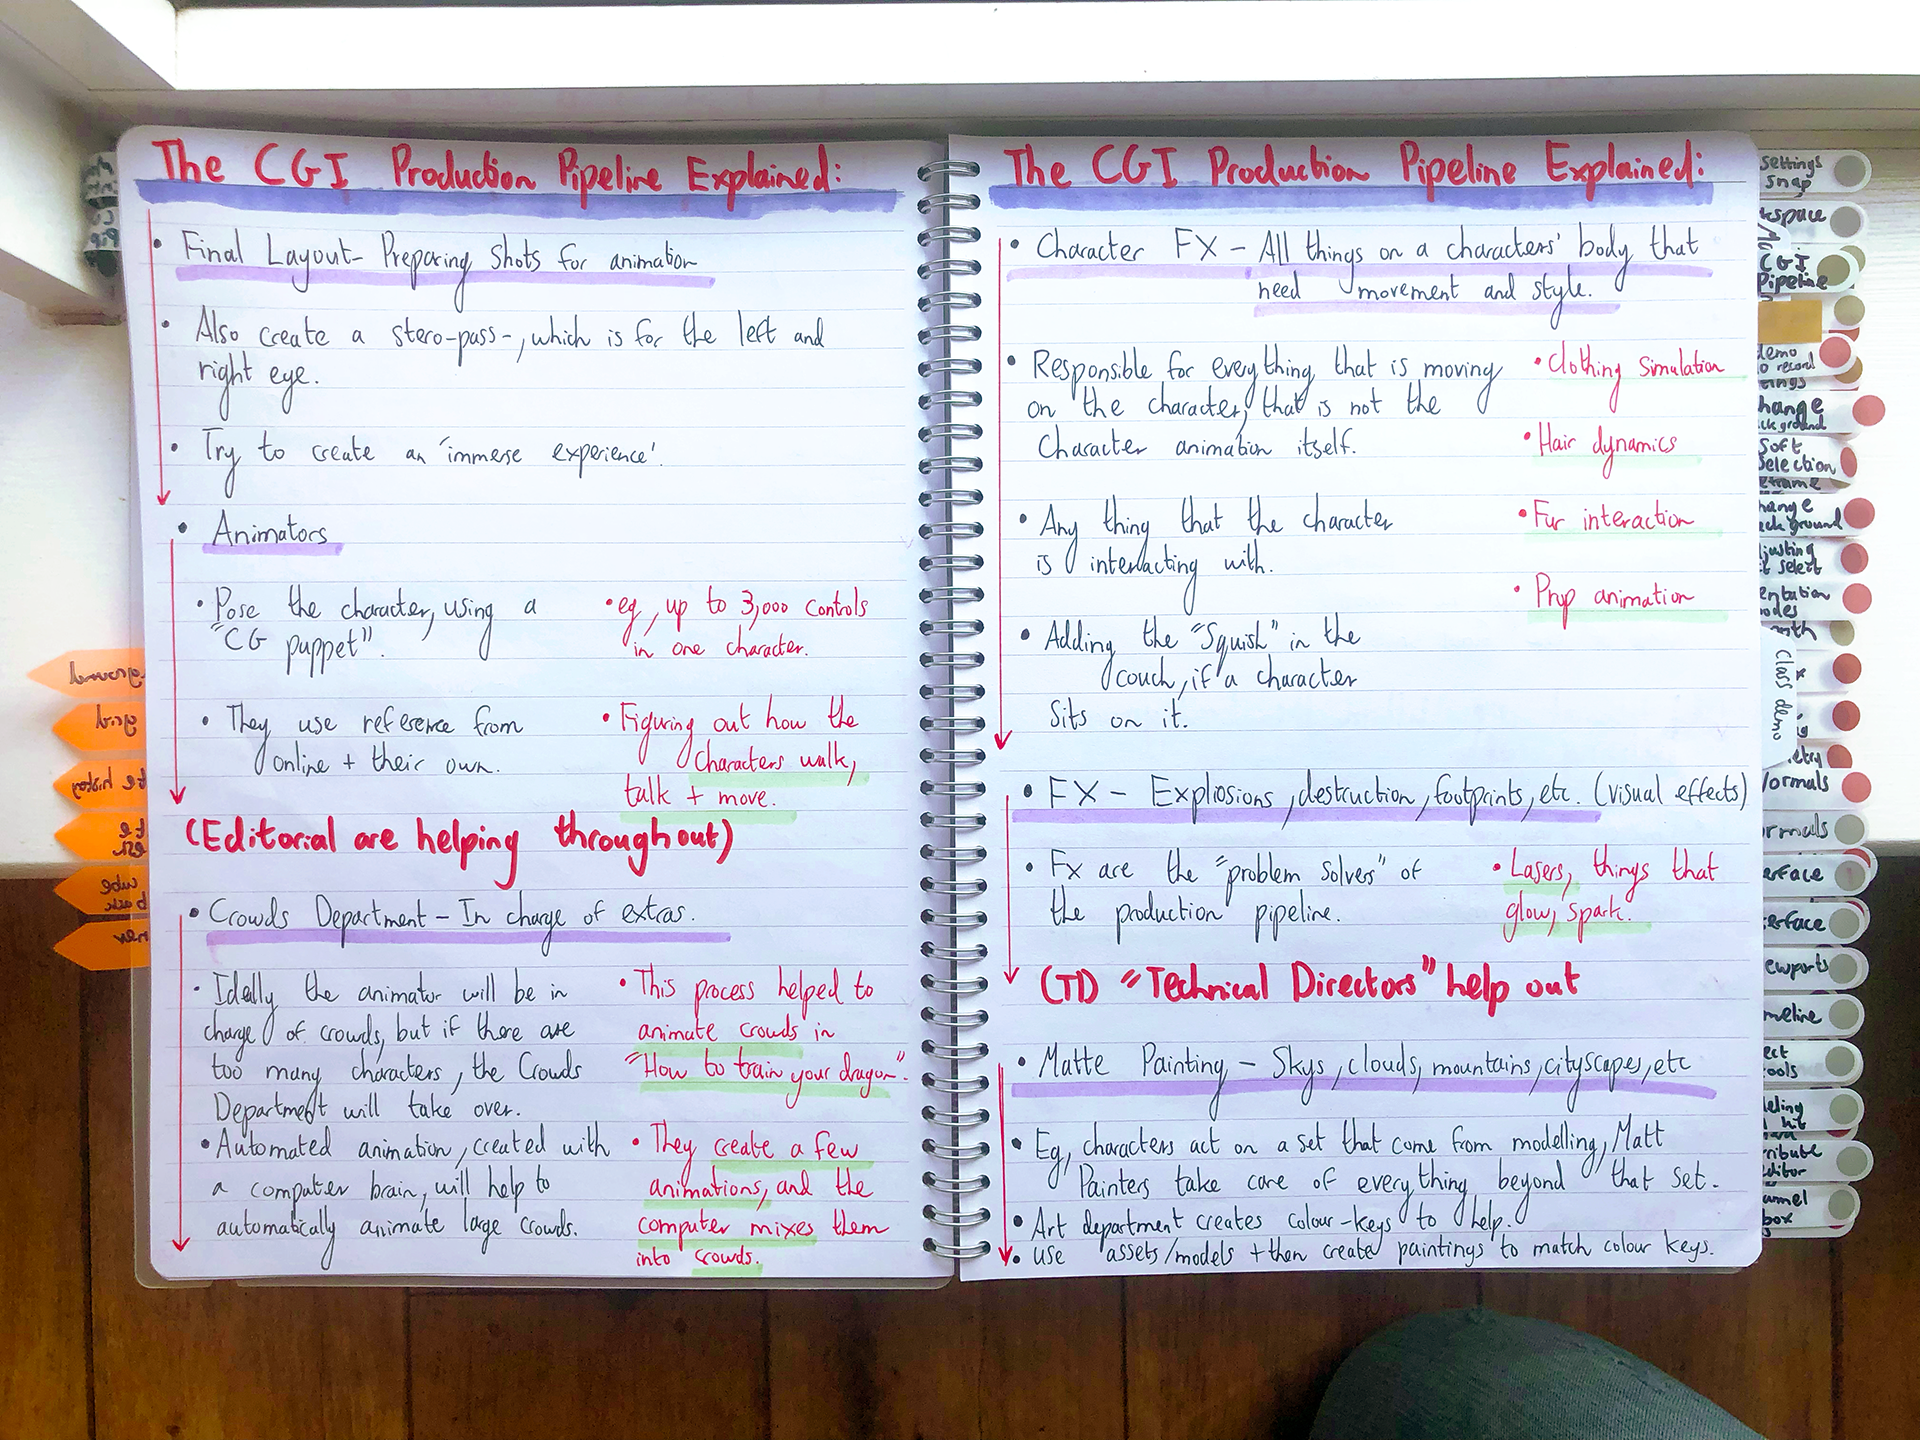 The CGI Production Pipeline Explained:
• Final Layout- Preparing shots for animation
• Also create a stero-pass-, which is for the left and
right eye.
• Try to create an 'immerse experience'.
• Animators
• Pose the character, using a
"CG puppet".
• eg, up to 3,000 controls
in one character.
• They use reference from
online + their own.
• Figuring out how the
characters walk,
talk + move.
(Editorial are helping throughout)
• Crowds Department - In charge of extras.
• Ideally the animator will be in
charge of crowds, but if there are
too many characters, the Crowds
Department will take over.
• This process helped to
animate crowds in
"How to train your dragon".
• Automated animation, created with
a computer brain, will help to
automatically animate large crowds.
• They create a few
animations, and the
computer mixes them
into crowds.
The CGI Production Pipeline Explained:
• Character FX - All things on a characters' body that
need movement and style.
• Responsible for everything that is moving
on the character, that is not the
Character animation itself.
• Clothing simulation
• Hair dynamics
• Fur interaction
• Prop animation
• Any thing that the character
is interacting with.
• Adding the "Squish" in the
couch, if a character
Sits on it.
• FX - Expliosions, destruction, footprints, etc. (visual effects)
• Fx are the "problem solvers" of
the production pipeline.
• Lasers, things that
glow, spark.
(TD) "Technical Directors" help out
• Matte Painting - Skys, clouds, mountains, cityscapes, etc
• Eg, characters act on a set that come from modelling, Matt
Painters take care of everything beyond that set.
• Art department creates colour-keys to help.
• use assets/models + then create paintings to match colour keys.
settings
snap
CGI
Pipeline
demo
Soft
Class demo